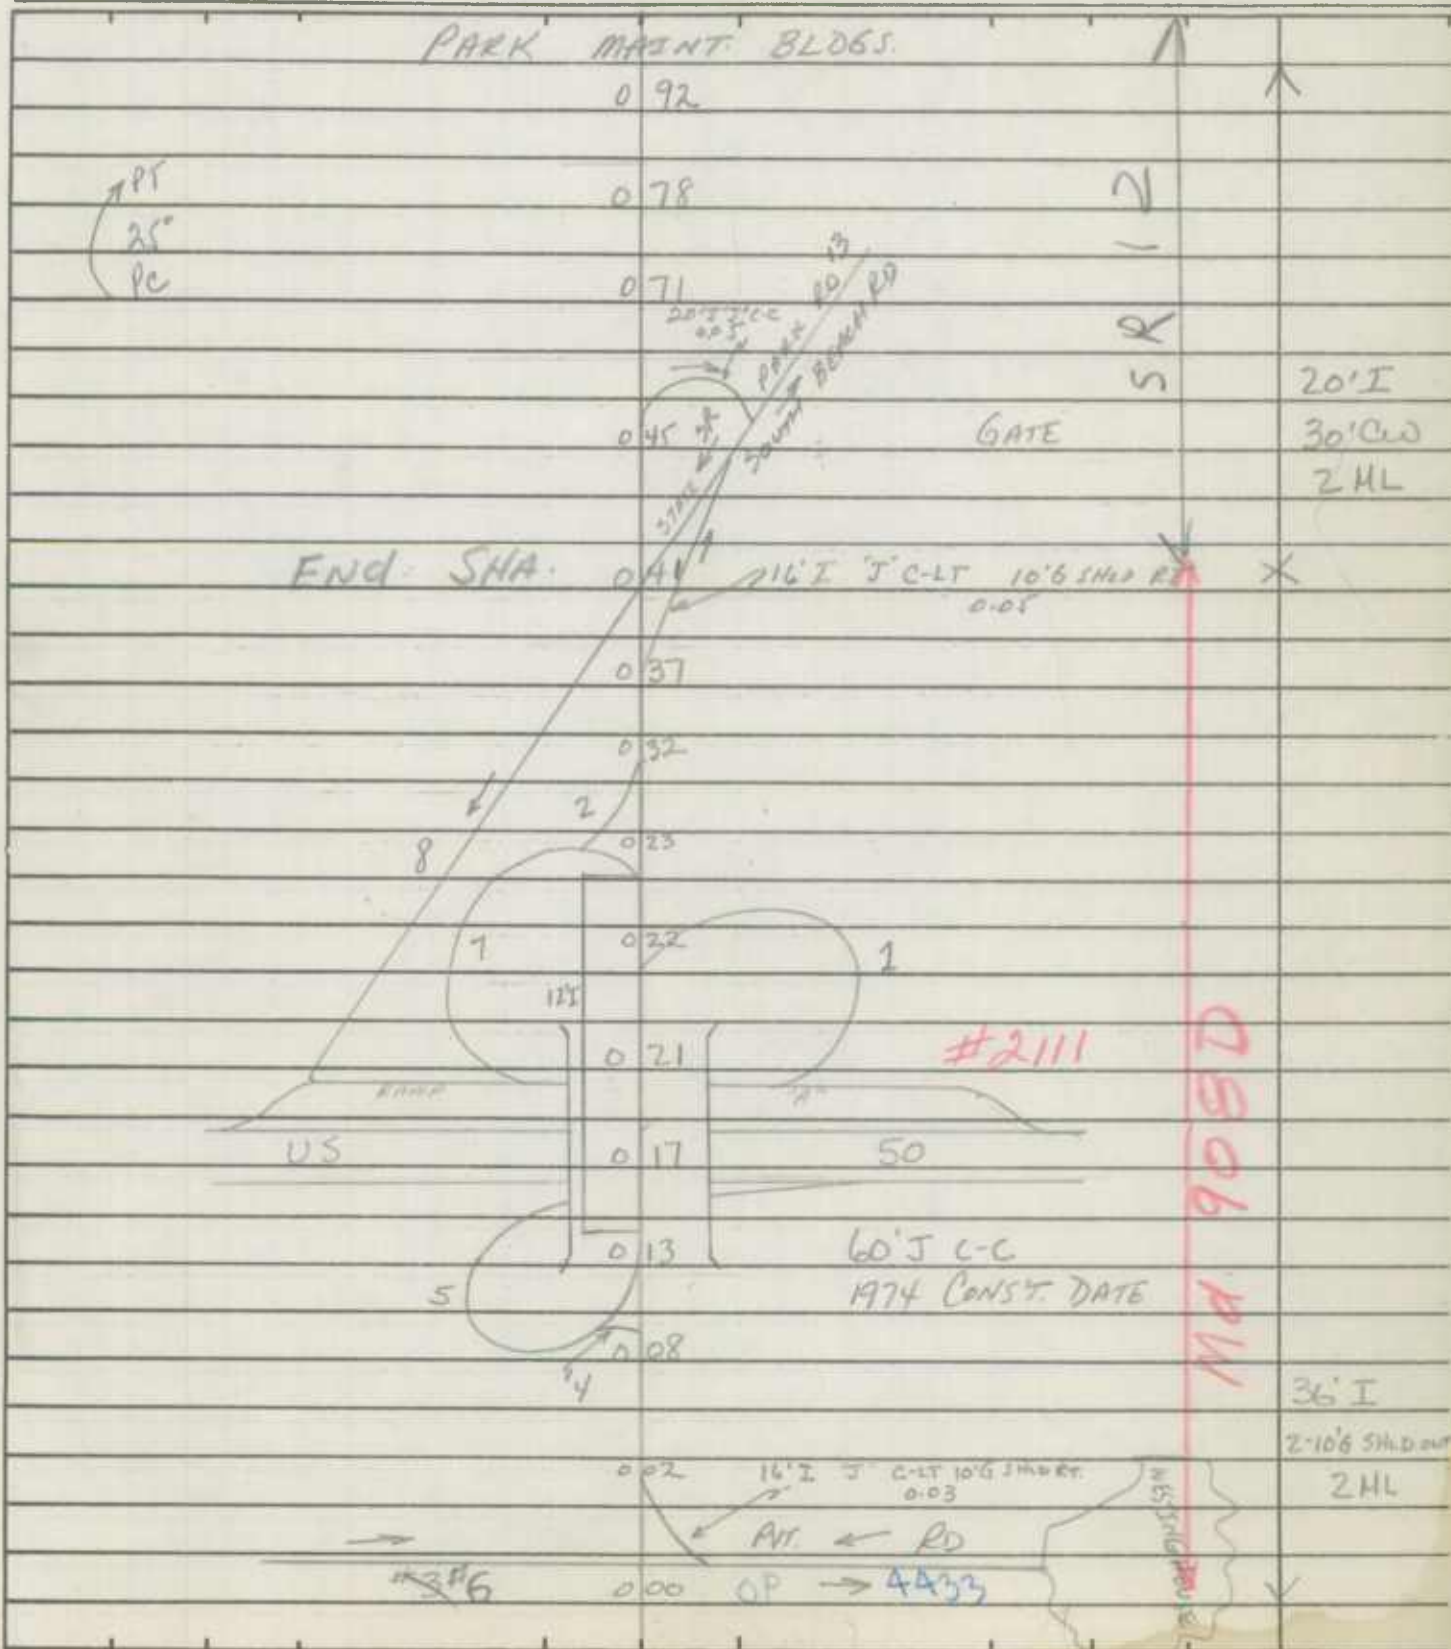 PARK MAINT. BLDGS.
0 92
PT
25°
PC
0 78
0 71
20' I "J" C-C
0.05
PARK RD 13
SOUTH BEACH RD
SR 12
20' I
30' CLO
2 ML
0 45
GATE
STATE
END SHA.
0 41
16' I "J" C-LT 10'G SHLD RT
0.05
0 37
0 32
2
0 23
8
7
0 22
1
12' I
0 21
#2111
RAMP
"A"
US
0 17
50
Md 905D
0 13
60' J C-C
1974 CONST. DATE
5
0 08
#4
36' I
2-10'G SHLD OUT
2 ML
0 02
16' I "J" C-LT 10'G SHLD RT.
0.03
PVT. RD
#3 #6
0 00
OP → 4433